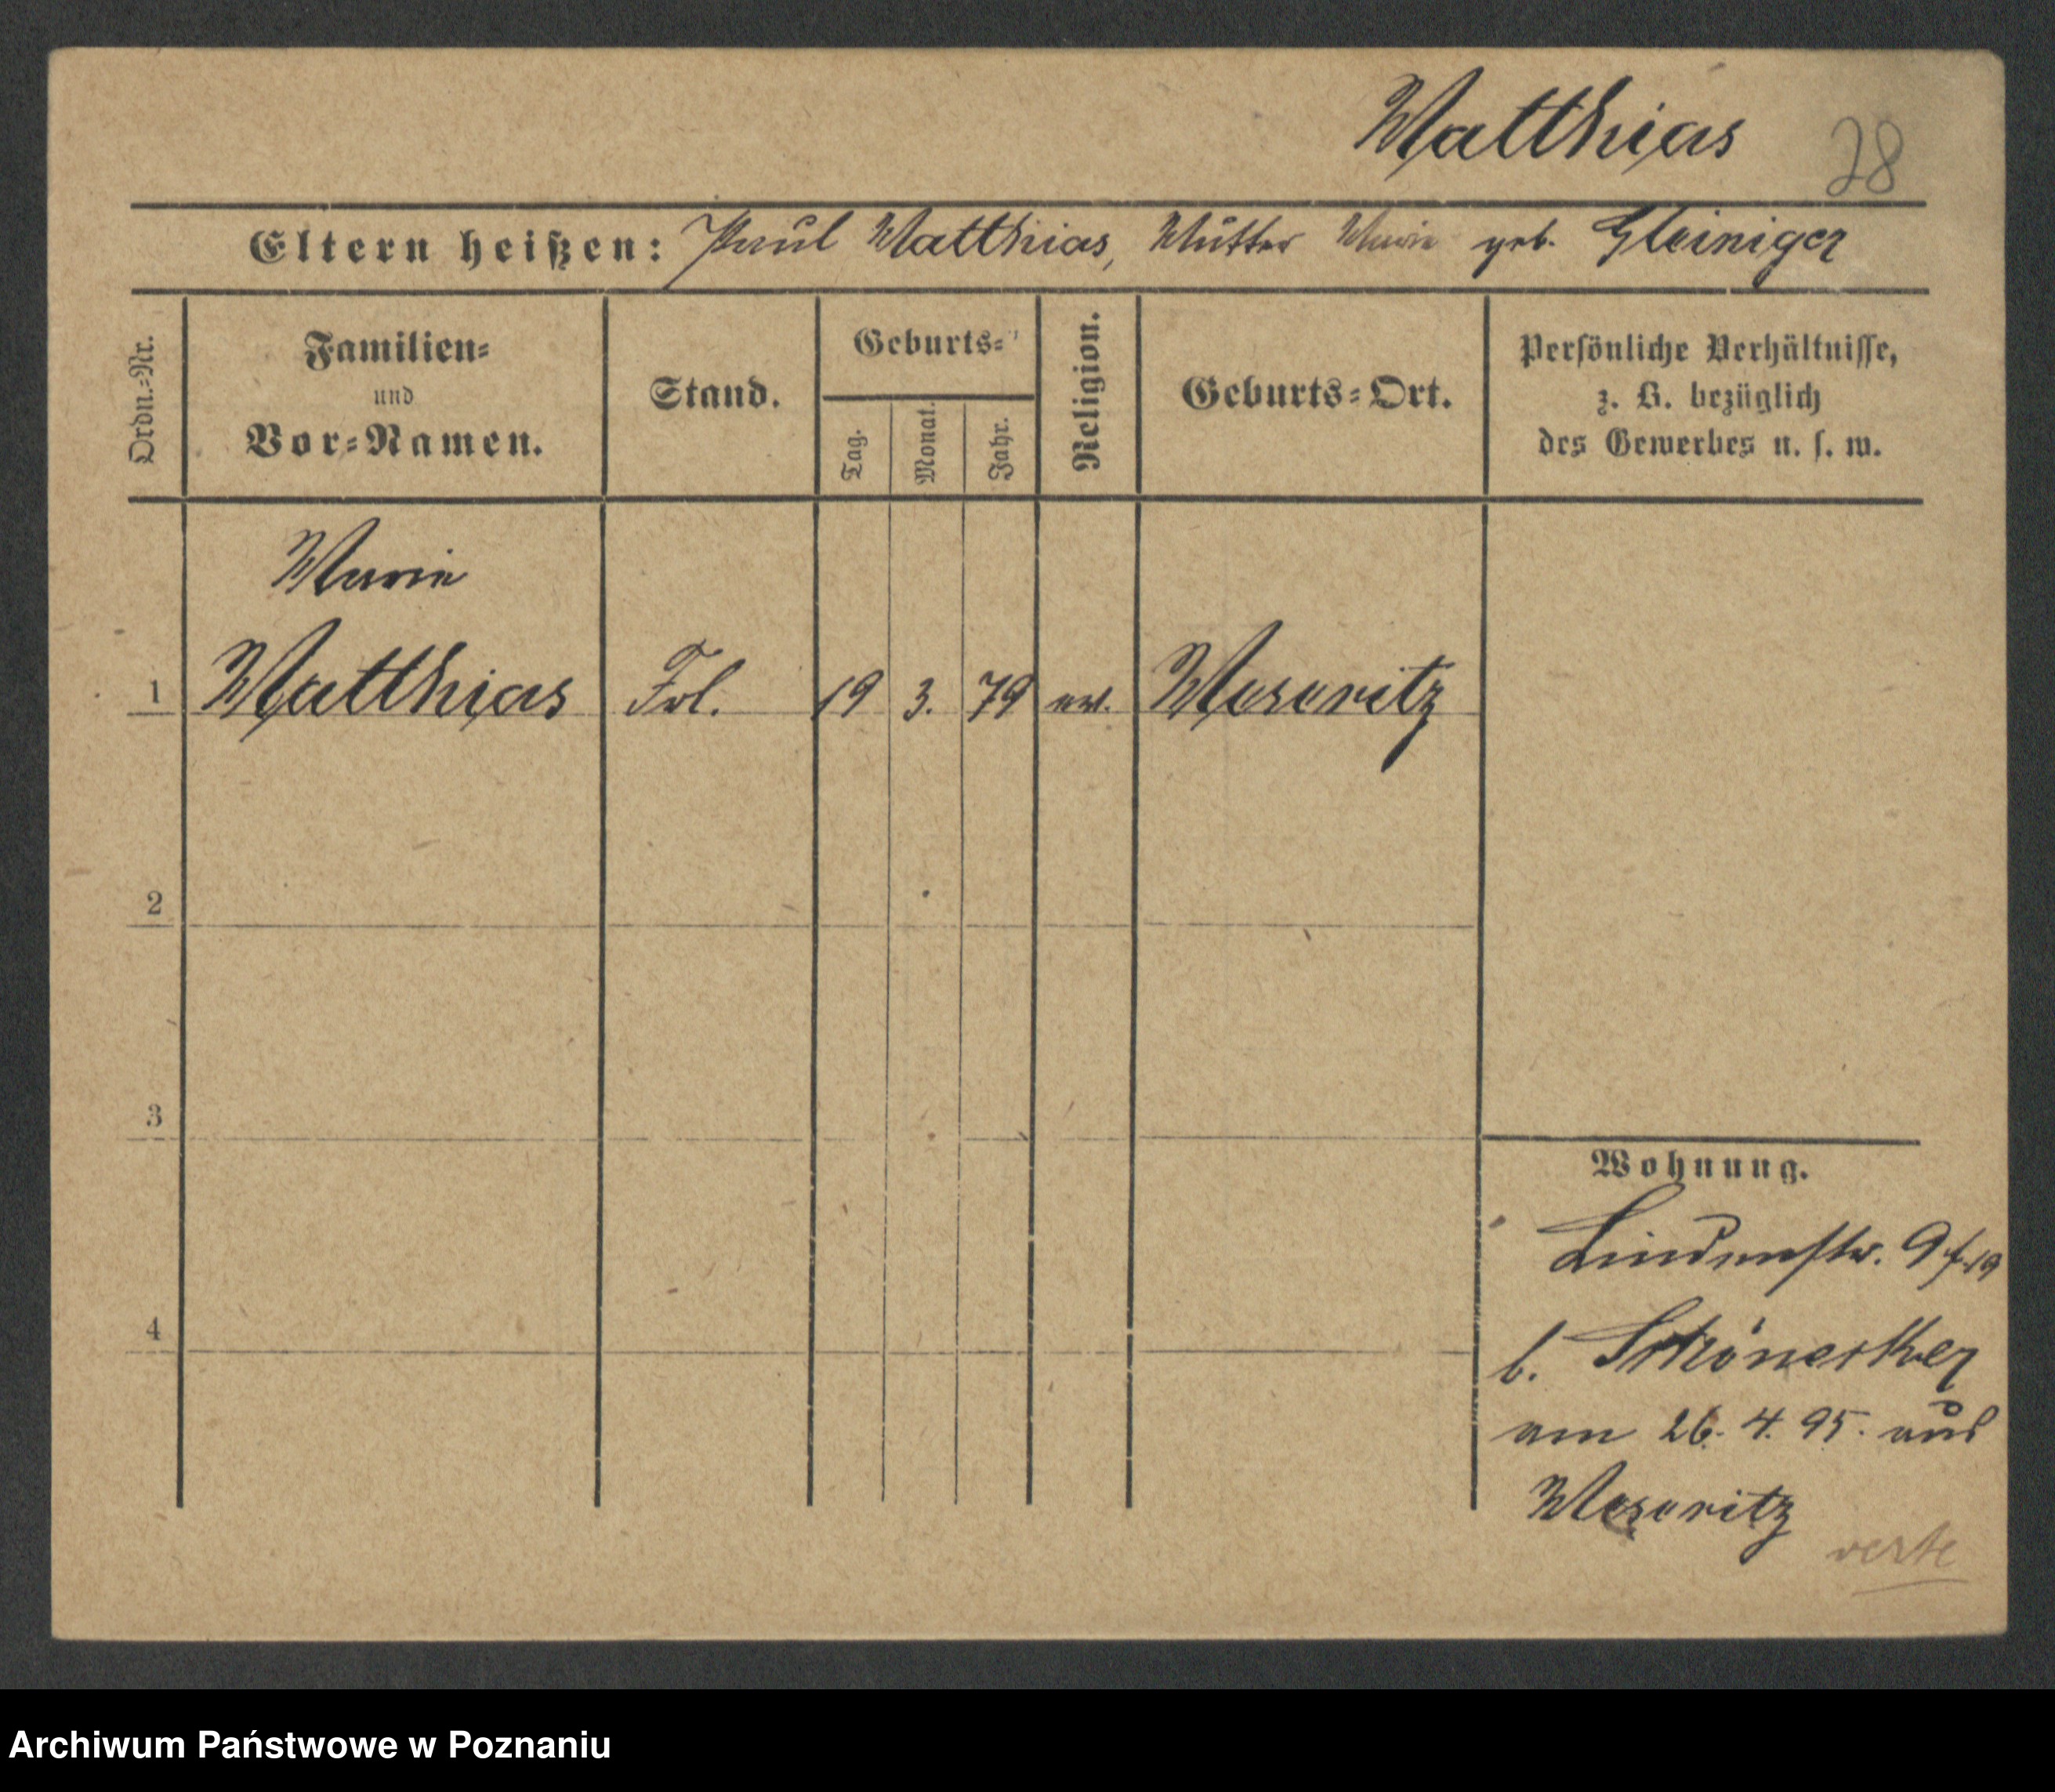 Matthias 28
Eltern heißen: Paul Matthias, Mutter Marie geb. Gleiniger
Ordn.-Nr.
Familien-
und
Vor-Namen.
Stand.
Geburts-
Tag.
Monat.
Jahr.
Religion.
Geburts-Ort.
Persönliche Verhältnisse,
z. B. bezüglich
des Gewerbes u. s. w.
Marie
1 Matthias Frl. 19 3. 79 ev. Meseritz
2
3
4
Wohnung.
Lindenstr. 9
b. Schönecker
am 26. 4. 95. aus
Meseritz
verte
Archiwum Państwowe w Poznaniu